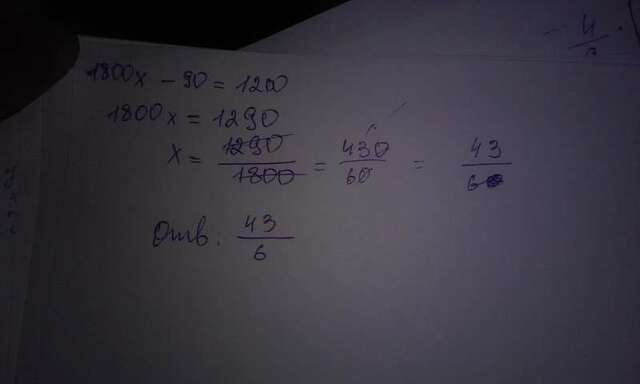 1800x - 90 = 1200
1800x = 1290
x = 1290/1800 = 430/60 = 43/6
Отв: 43/6